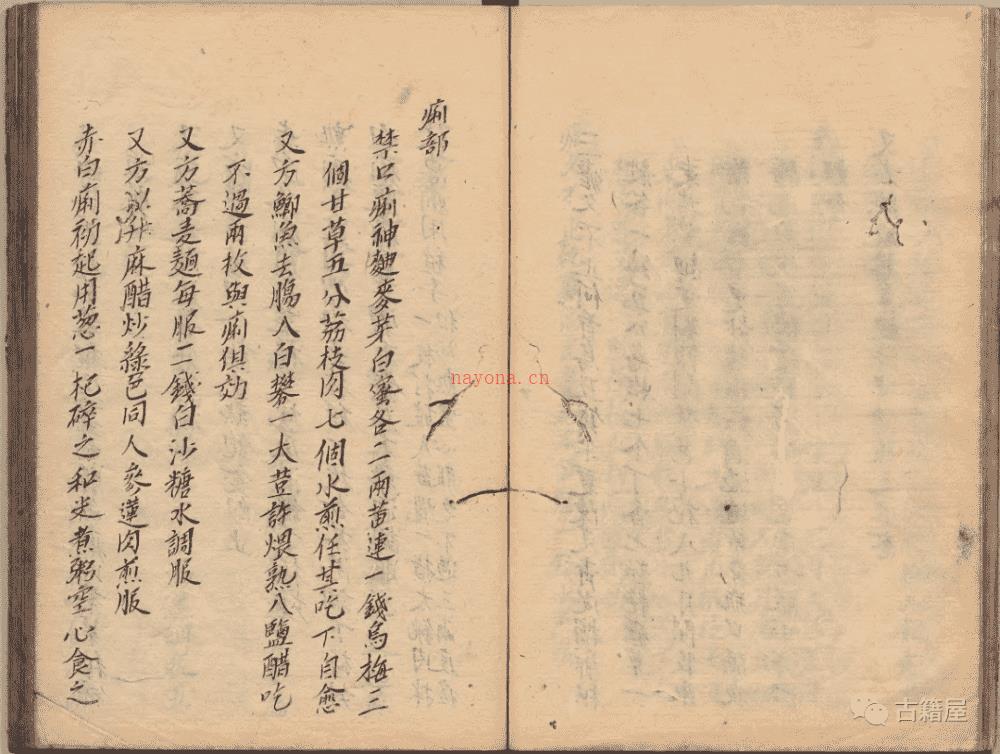 痢部
禁口痢神麯麥芽白蜜各二兩黃連一錢烏梅三
個甘草五分荔枝肉七個水煎任其吃下自愈
又方鯽魚去腸入白礬一大荳許煨熟入鹽醋吃
不過兩枚與痢俱効
又方蕎麦麵每服二錢白沙糖水調服
又方以升麻醋炒綠色同人參蓮肉煎服
赤白痢初起用葱一把碎之和米煮粥空心食之
nayona.cn
古籍屋